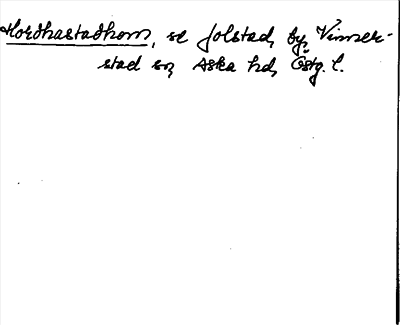 Hordhastadhom, se Jolstad, by, Vinner-
stad sn, Aska hd, Östg. l.